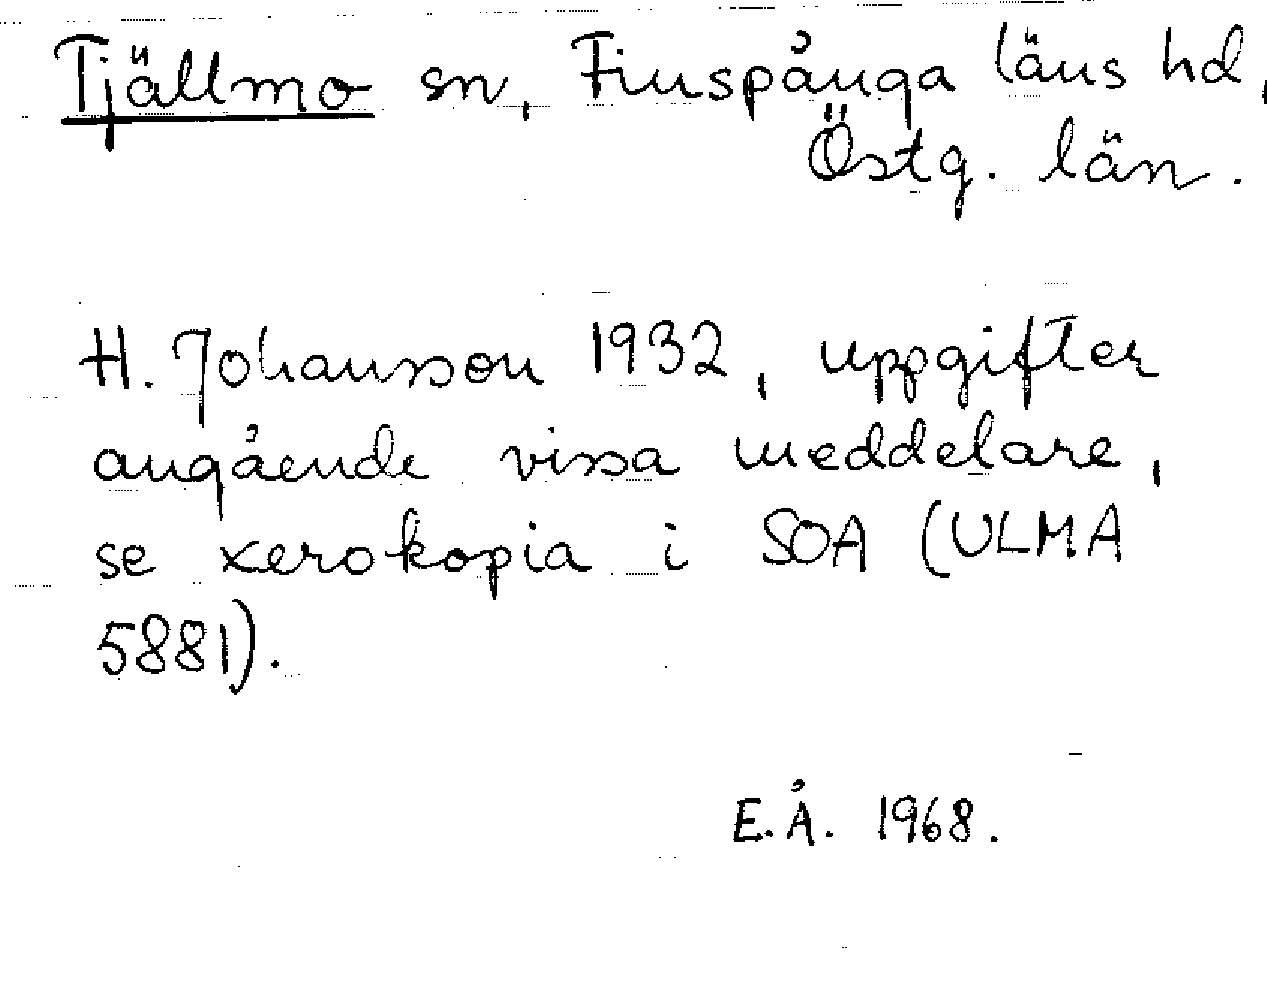 Tjällmo sn, Finspånga läns hd,
Östg. län.
H. Johansson 1932, uppgifter
angående vissa meddelare,
se xerokopia i SOA (ULMA
5881).
E.Å. 1968.